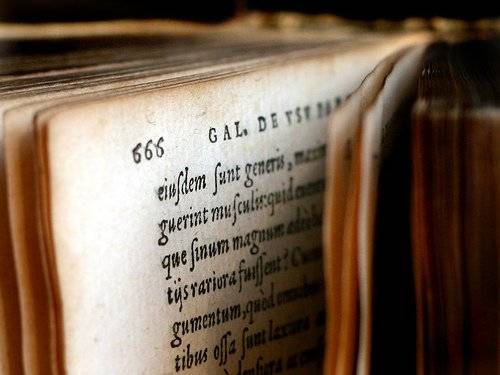 666 GAL. DE VSV PAR
eiusdem sunt generis, maxim
guerint musculis: quid
que sinum magnum
tijs rariora fuissent?
gumentum, quòd
tibus ossa sunt laxiora